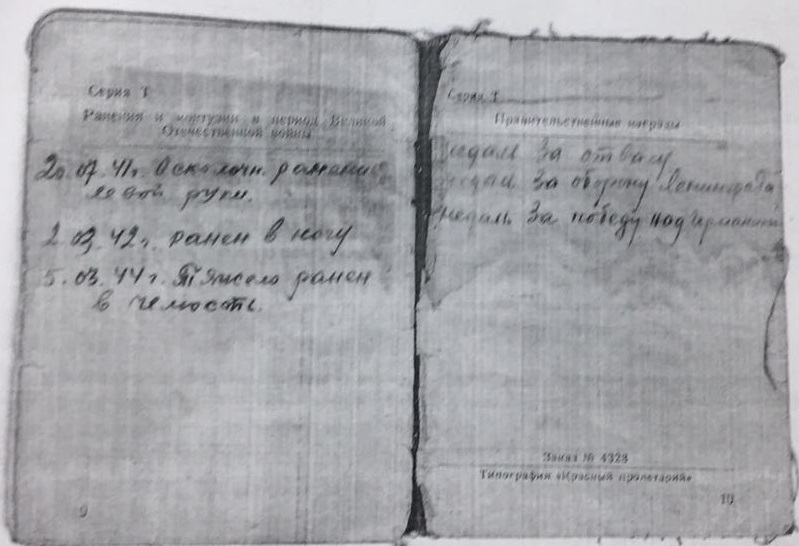 Серия Т
Ранения и контузии в период Великой
Отечественной войны
20.07.41г. Осколочн. ранение
левой руки.
2.03.42г. ранен в ногу
5.03.44г. Тяжело ранен
в челюсть.
9
Серия Т
Правительственные награды
медаль За отвагу
медаль За оборону Ленинграда
медаль За победу над Германией
Заказ № 4328
Типография «Красный пролетарий»
10